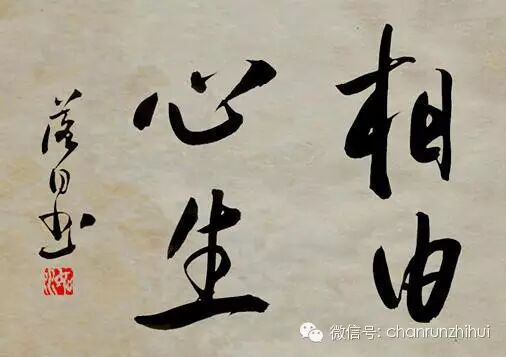 相由
心生
微信号: chanrunzhihui